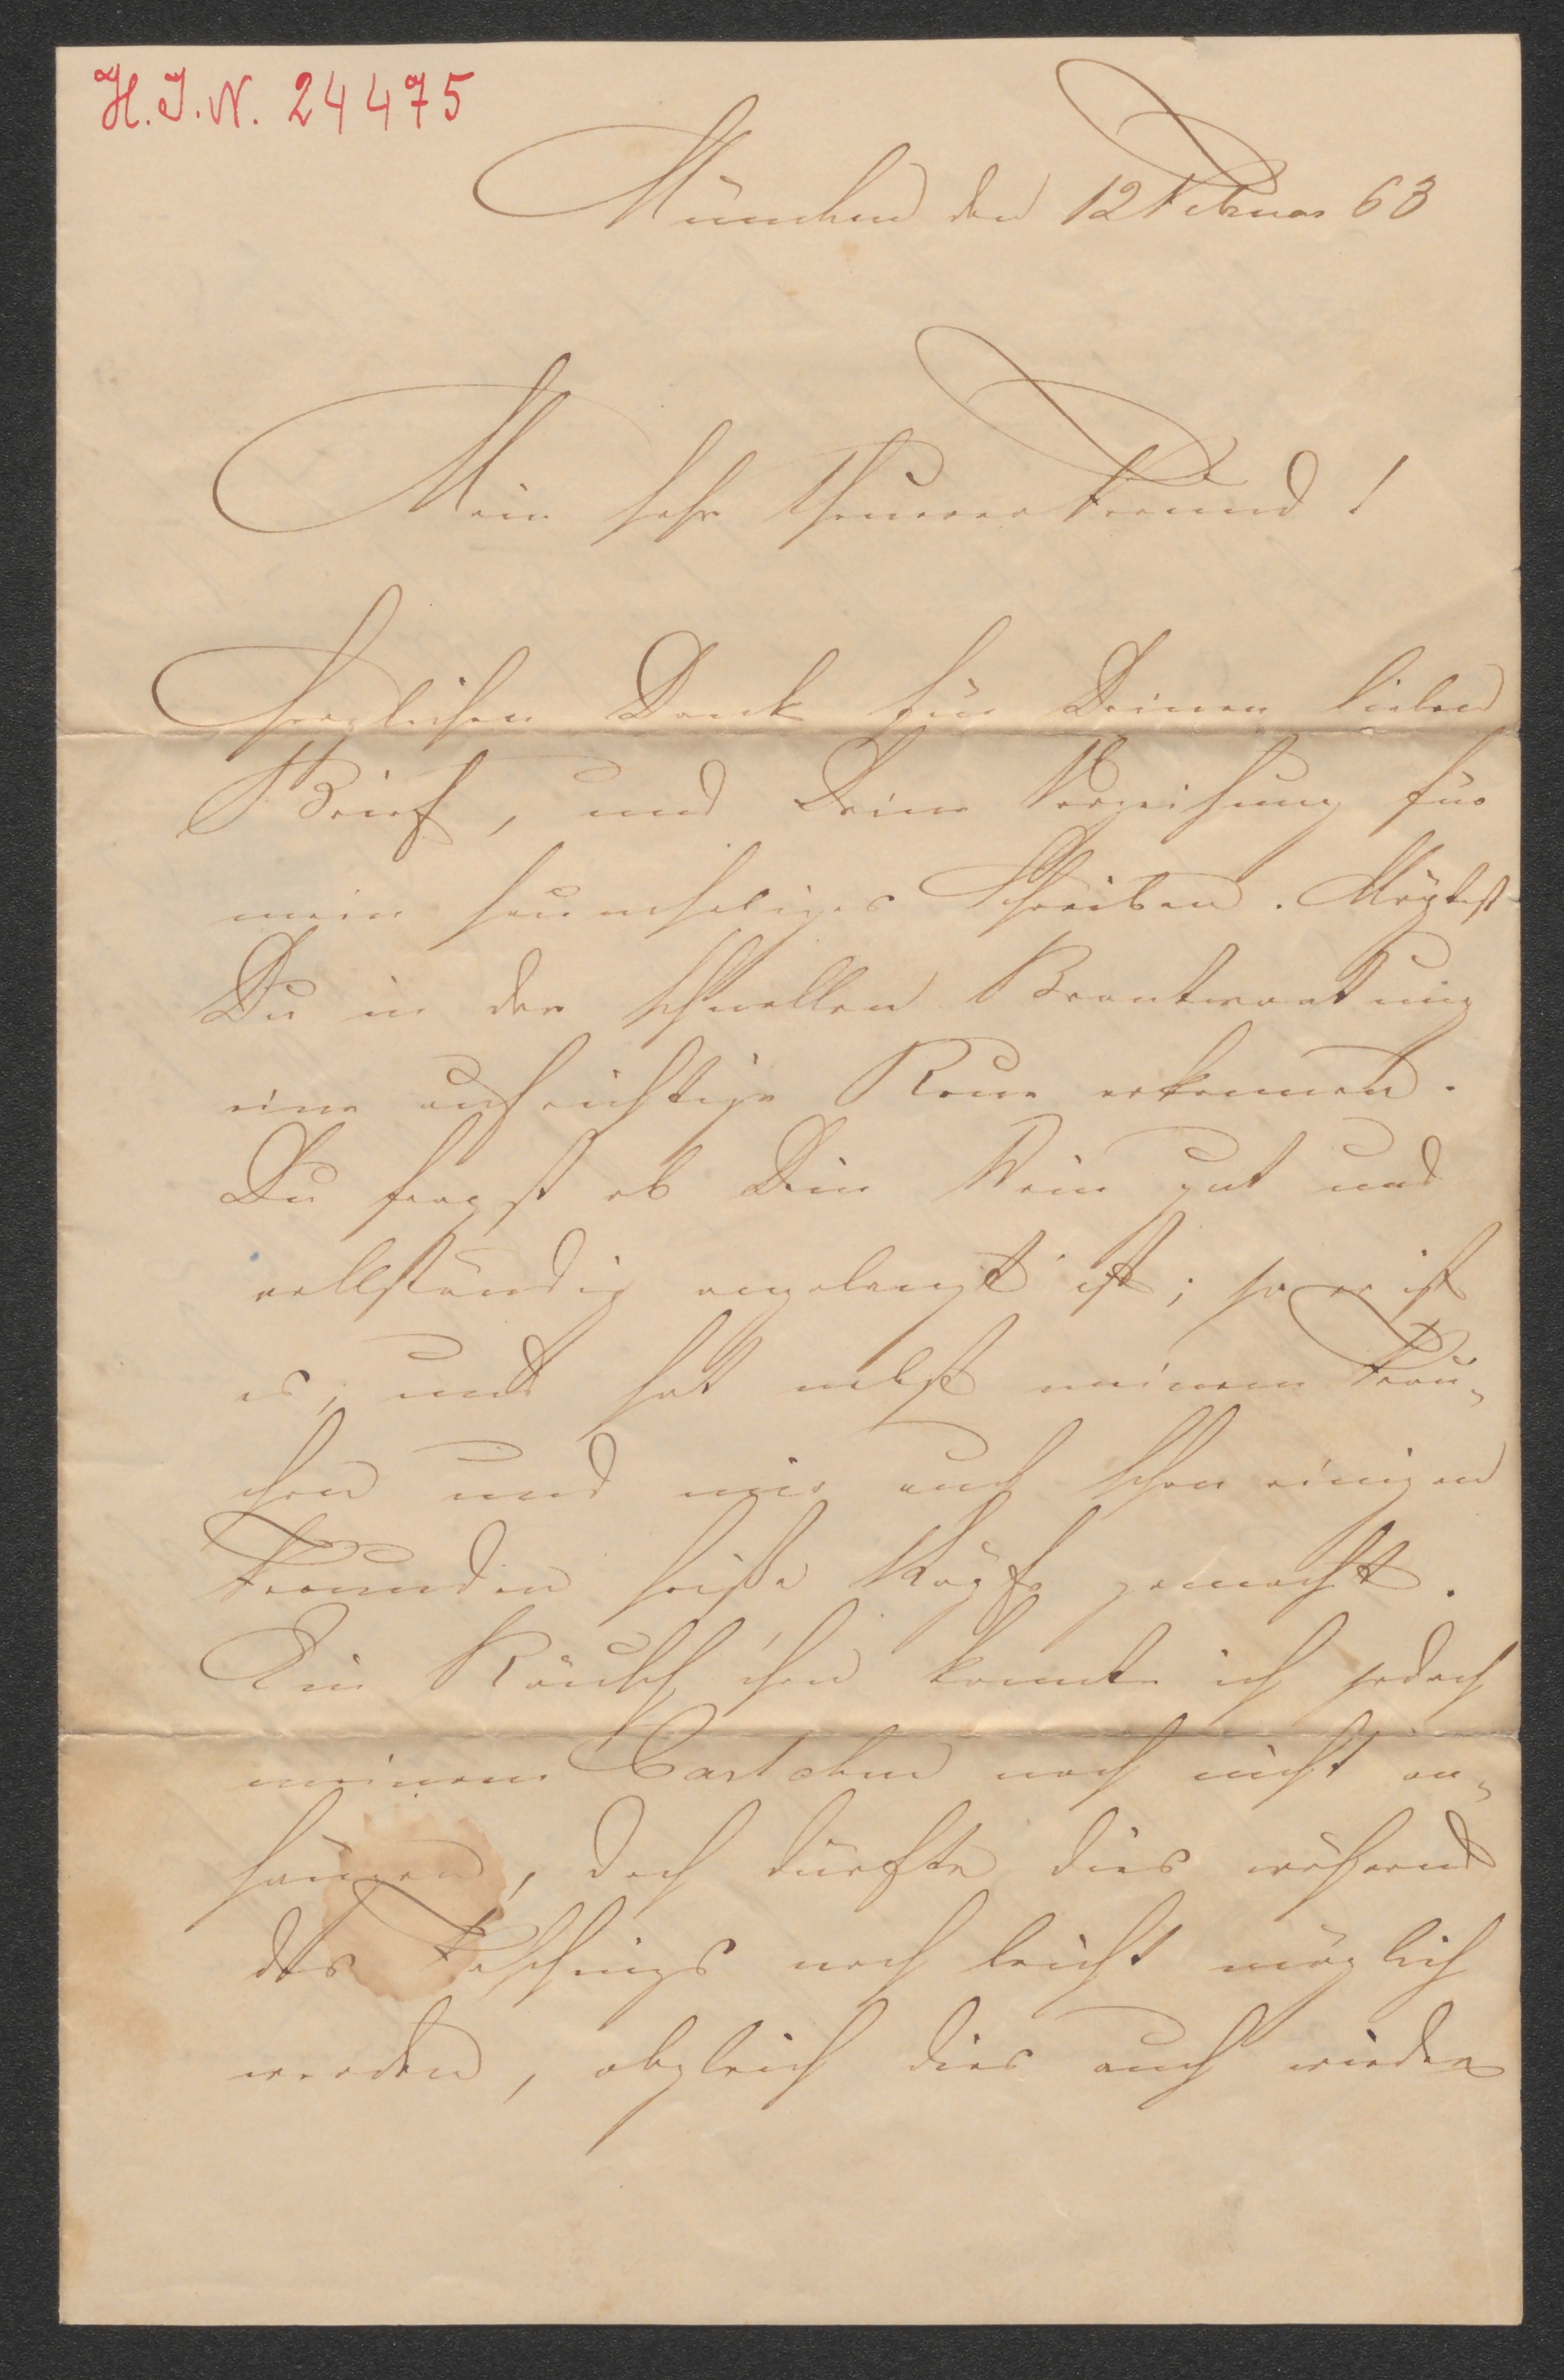 H.I.N. 24475
München den 12 Februar 63
Mein sehr theurer Freund!
Herzlichen Dank für Deinen lieben
Brief, und Deine Verzeihung für
mein saumseliges Schreiben. Mögtest
Du in der schnellen Beantwortung
eine aufrichtige Reue erkennen.
Du fragst ob Dein Wein gut und
vollständig angelangt ist; ja er ist
es, und hat nebst meinem Frau-
chen und mir auch schon einigen
Freunden heiße Köpfe gemacht.
Ein Räuschchen konnte ich jedoch
meinem noch nicht an-
hängen, doch dürfte dies während
des Faschings noch leicht möglich
werden, obgleich dies auch wieder